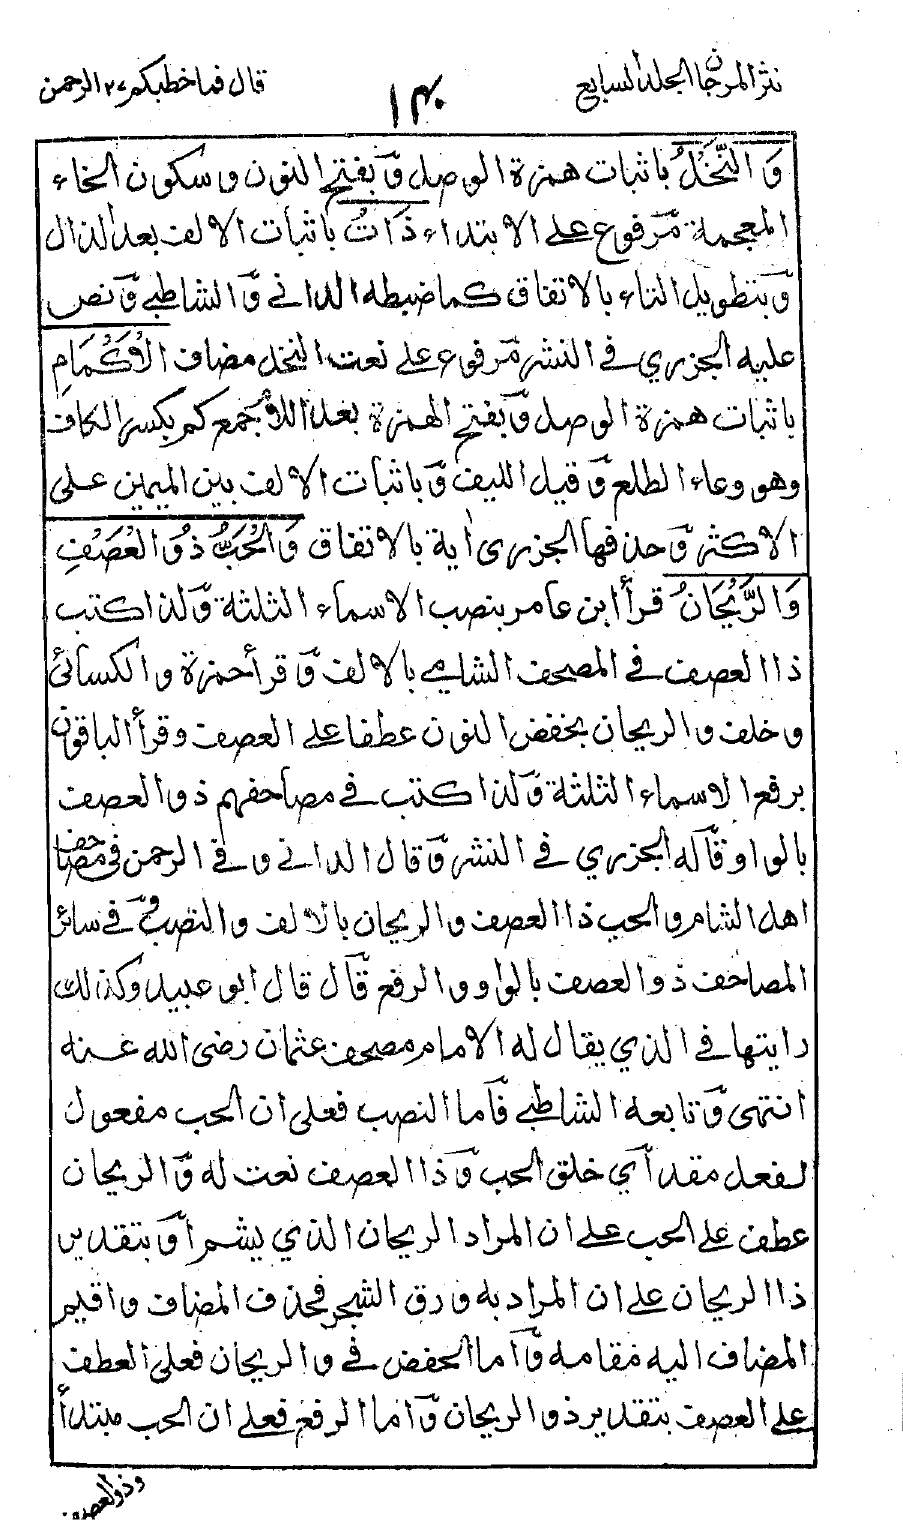 نثر المرجان الجلد السابع
١٤٠
قال فما خطبكم ٢٧ الرحمن
وَالنَّخْلُ باثبات همزة الوصل وّبفتح النون و سكون الخاء
المعجمة مّرفوع على الابتداء ذَاتُ باثبات الالف بعد الذال
وّبتطويل التاء بالاتفاق كما ضبطه الداني وّالشاطبي وّنص
عليه الجزري في النشر مّرفوع على نعت النخل مضاف الْاَكْمَامِ
باثبات همزة الوصل وّبفتح الهمزة بعد اللام جمع كم بكسر الكاف
وهو وعاء الطلع وّقيل الليف وّباثبات الالف بين الميمين على
الاكثر وّحذفها الجزرى اٰية بالاتفاق وَالْحَبُّ ذُو الْعَصْفِ
وَالرَّيْحَانُ قرأ ابن عامر بنصب الاسماء الثلثة وّلذا كتب
ذا العصف في المصحف الشامي بالالف وّقرأ حمزة و الكسائي
و خلف و الريحان بخفض النون عطفا على العصف و قرأ الباقون
برفع الاسماء الثلثة وّلذا كتب في مصاحفهم ذو العصف
بالواو قّاله الجزري في النشر وّقال الداني و في الرحمن في مصاحف
اهل الشام و الحب ذا العصف و الريحان بالالف و النصب وّفي سائر
المصاحف ذو العصف بالواو و الرفع قّال قال ابو عبيد وكذلك
رايتها في الذي يقال له الامام مصحف عثمان رضى الله عنه
انتهى وّتابعه الشاطبي فّاما النصب فعلى ان الحب مفعول
لفعل مقدر اّي خلق الحب وّذا العصف نعت له وّالريحان
عطف على الحب على ان المراد الريحان الذي يشم اّو بتقدير
ذا الريحان على ان المراد به ورق الشجر فحذف المضاف و اقيم
المضاف اليه مقامه وّاما الخفض في و الريحان فعلى العطف
على العصف بتقدير ذو الريحان وّاما الرفع فعلى ان الحب مبتدأ
وذو العصف